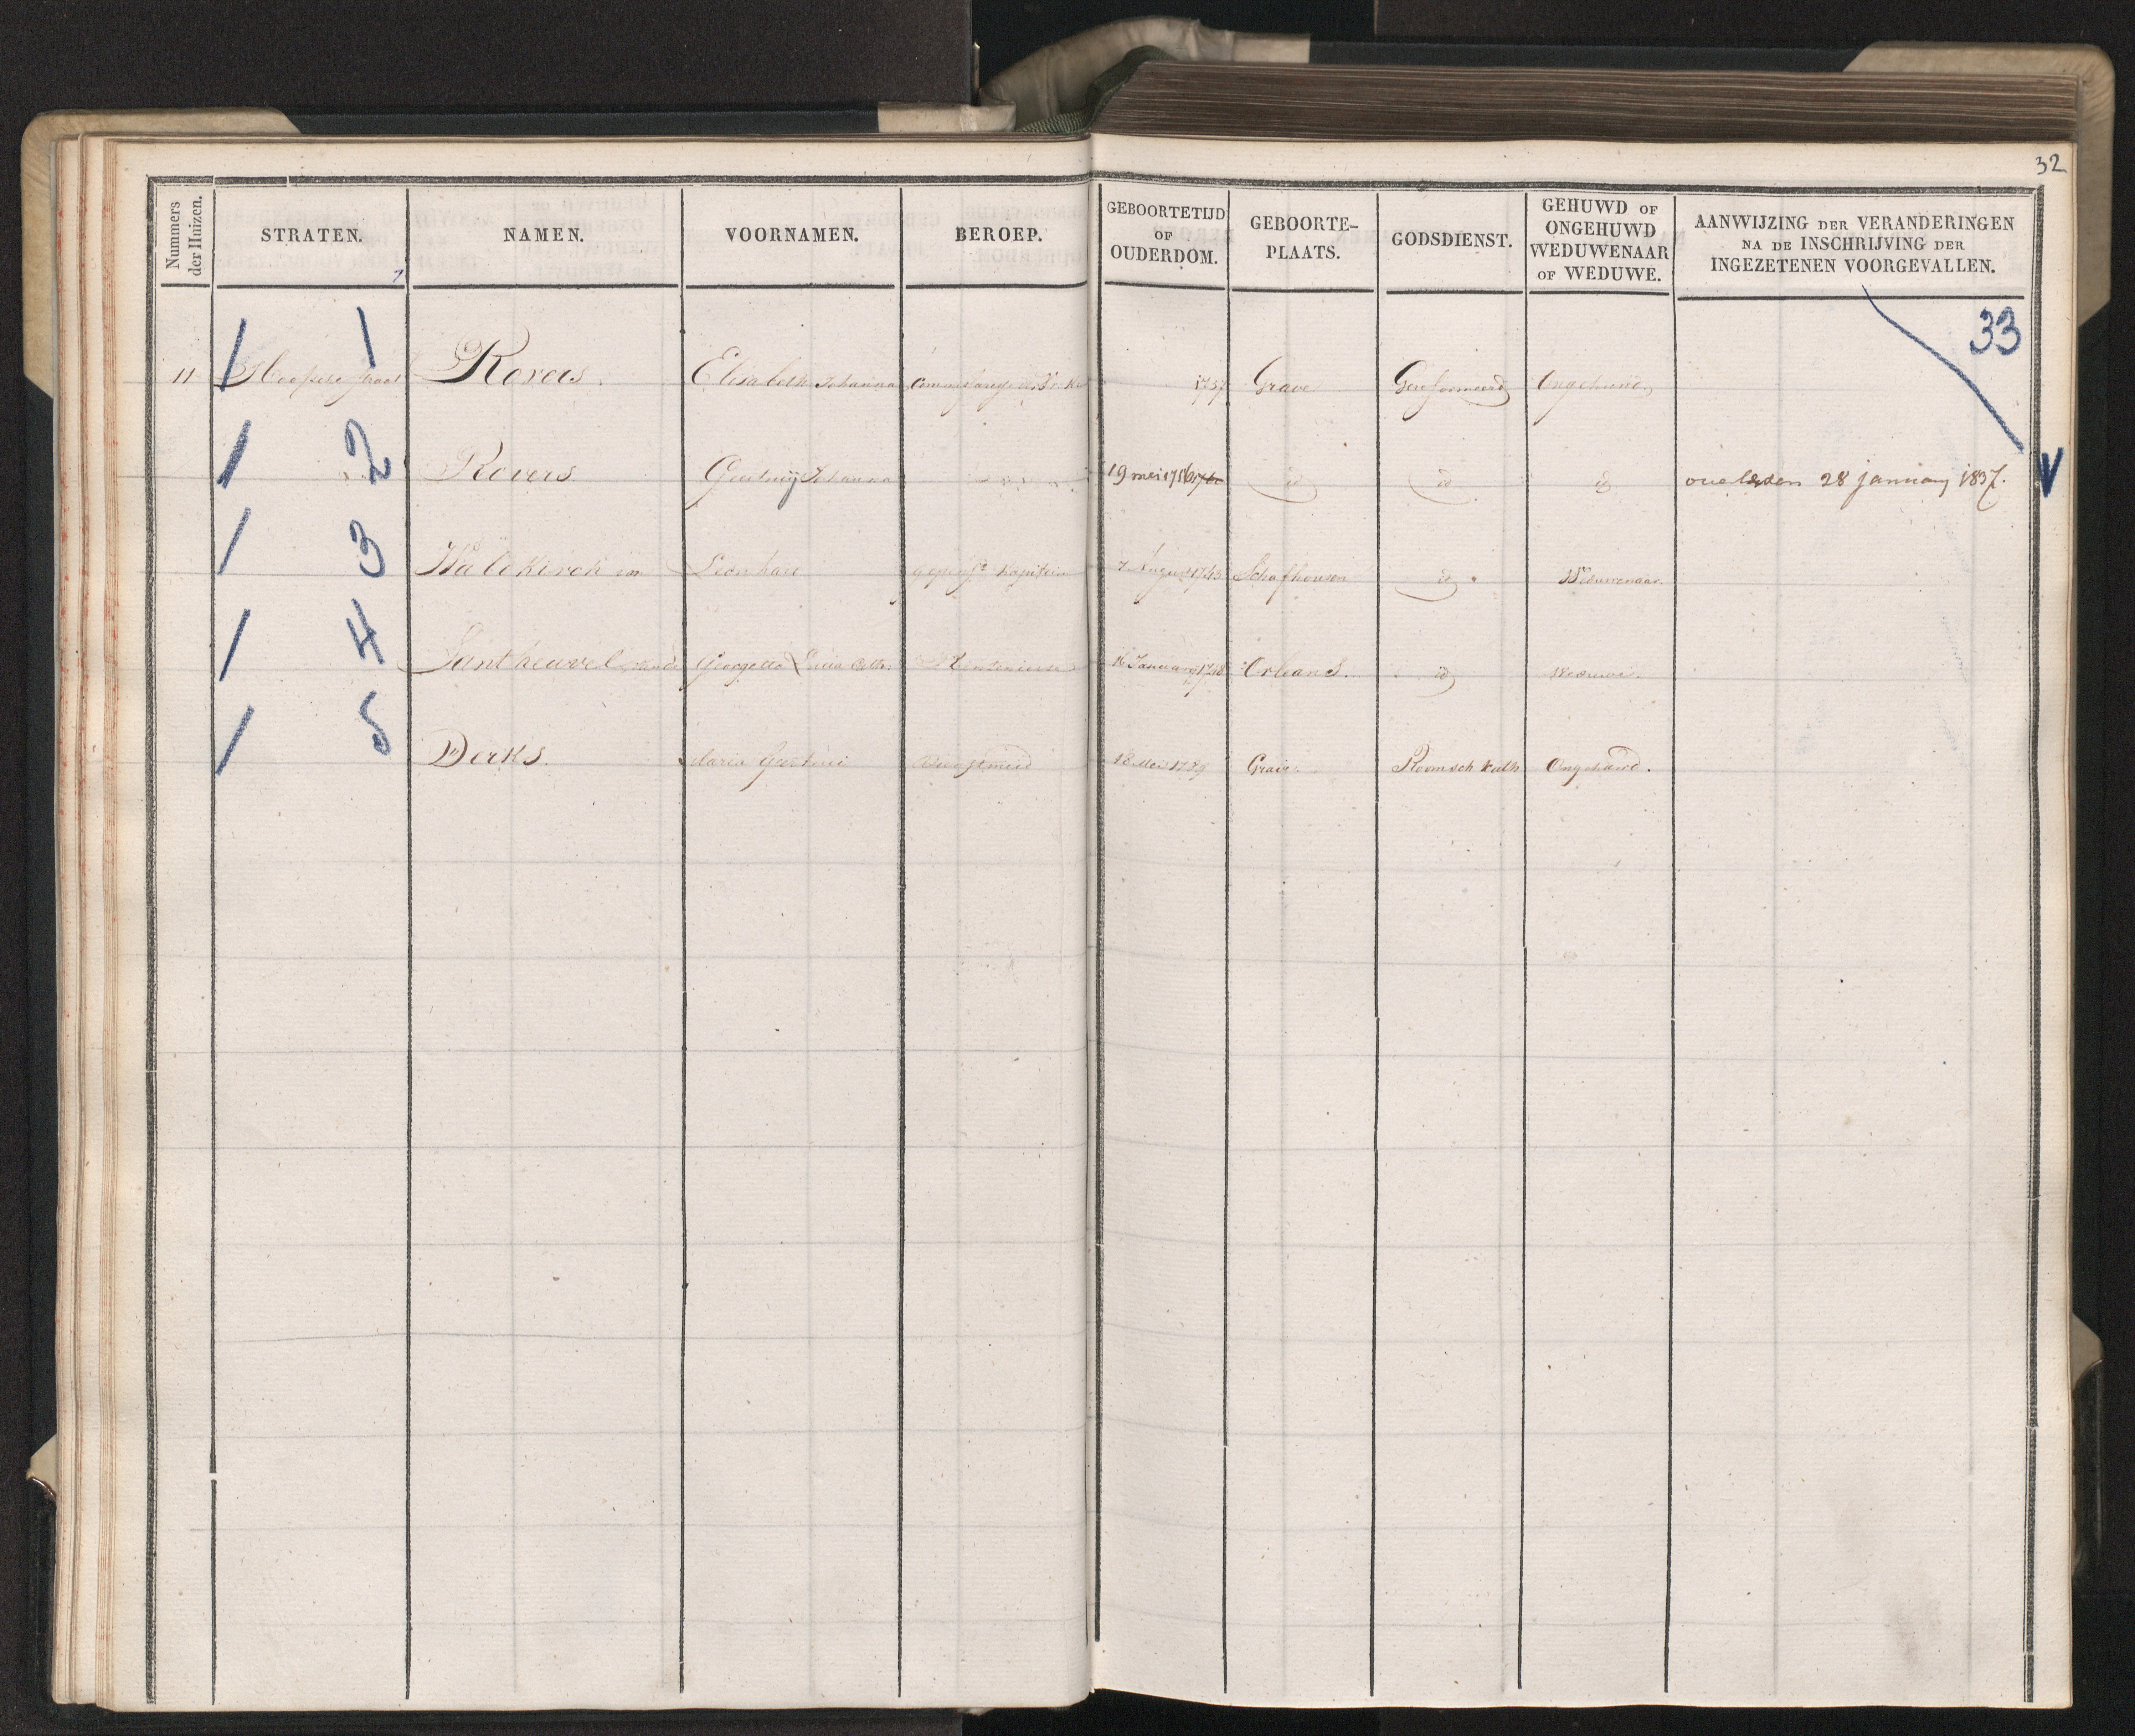 32
Nummers der Huizen. STRATEN. NAMEN. VOORNAMEN. BEROEP. GEBOORTETIJD OF OUDERDOM. GEBOORTE-PLAATS. GODSDIENST. GEHUWD OF ONGEHUWD WEDUWENAAR OF WEDUWE. AANWIJZING DER VERANDERINGEN NA DE INSCHRIJVING DER INGEZETENEN VOORGEVALLEN.
33
11 1 Rovers Elisabeth Johanna 1757 Grave Gereformeerd Ongehuwd
2 Rovers Geertruij Johanna 19 mei 1756 id id id overleden 28 januarij 1837.
3 Waldkirch von Leonhard gepens. Kapitein 7 August 1743 Schafhousen id Weduwenaar.
4 Santheuvel Georgette Lucia Rentenierse 16 Januarij 1748 Orleans. id Weduwe.
5 Derks. Maria Geertrui Dienstmeid 18 Mei 1789 Grave Roomsch Kath Ongehuwd.